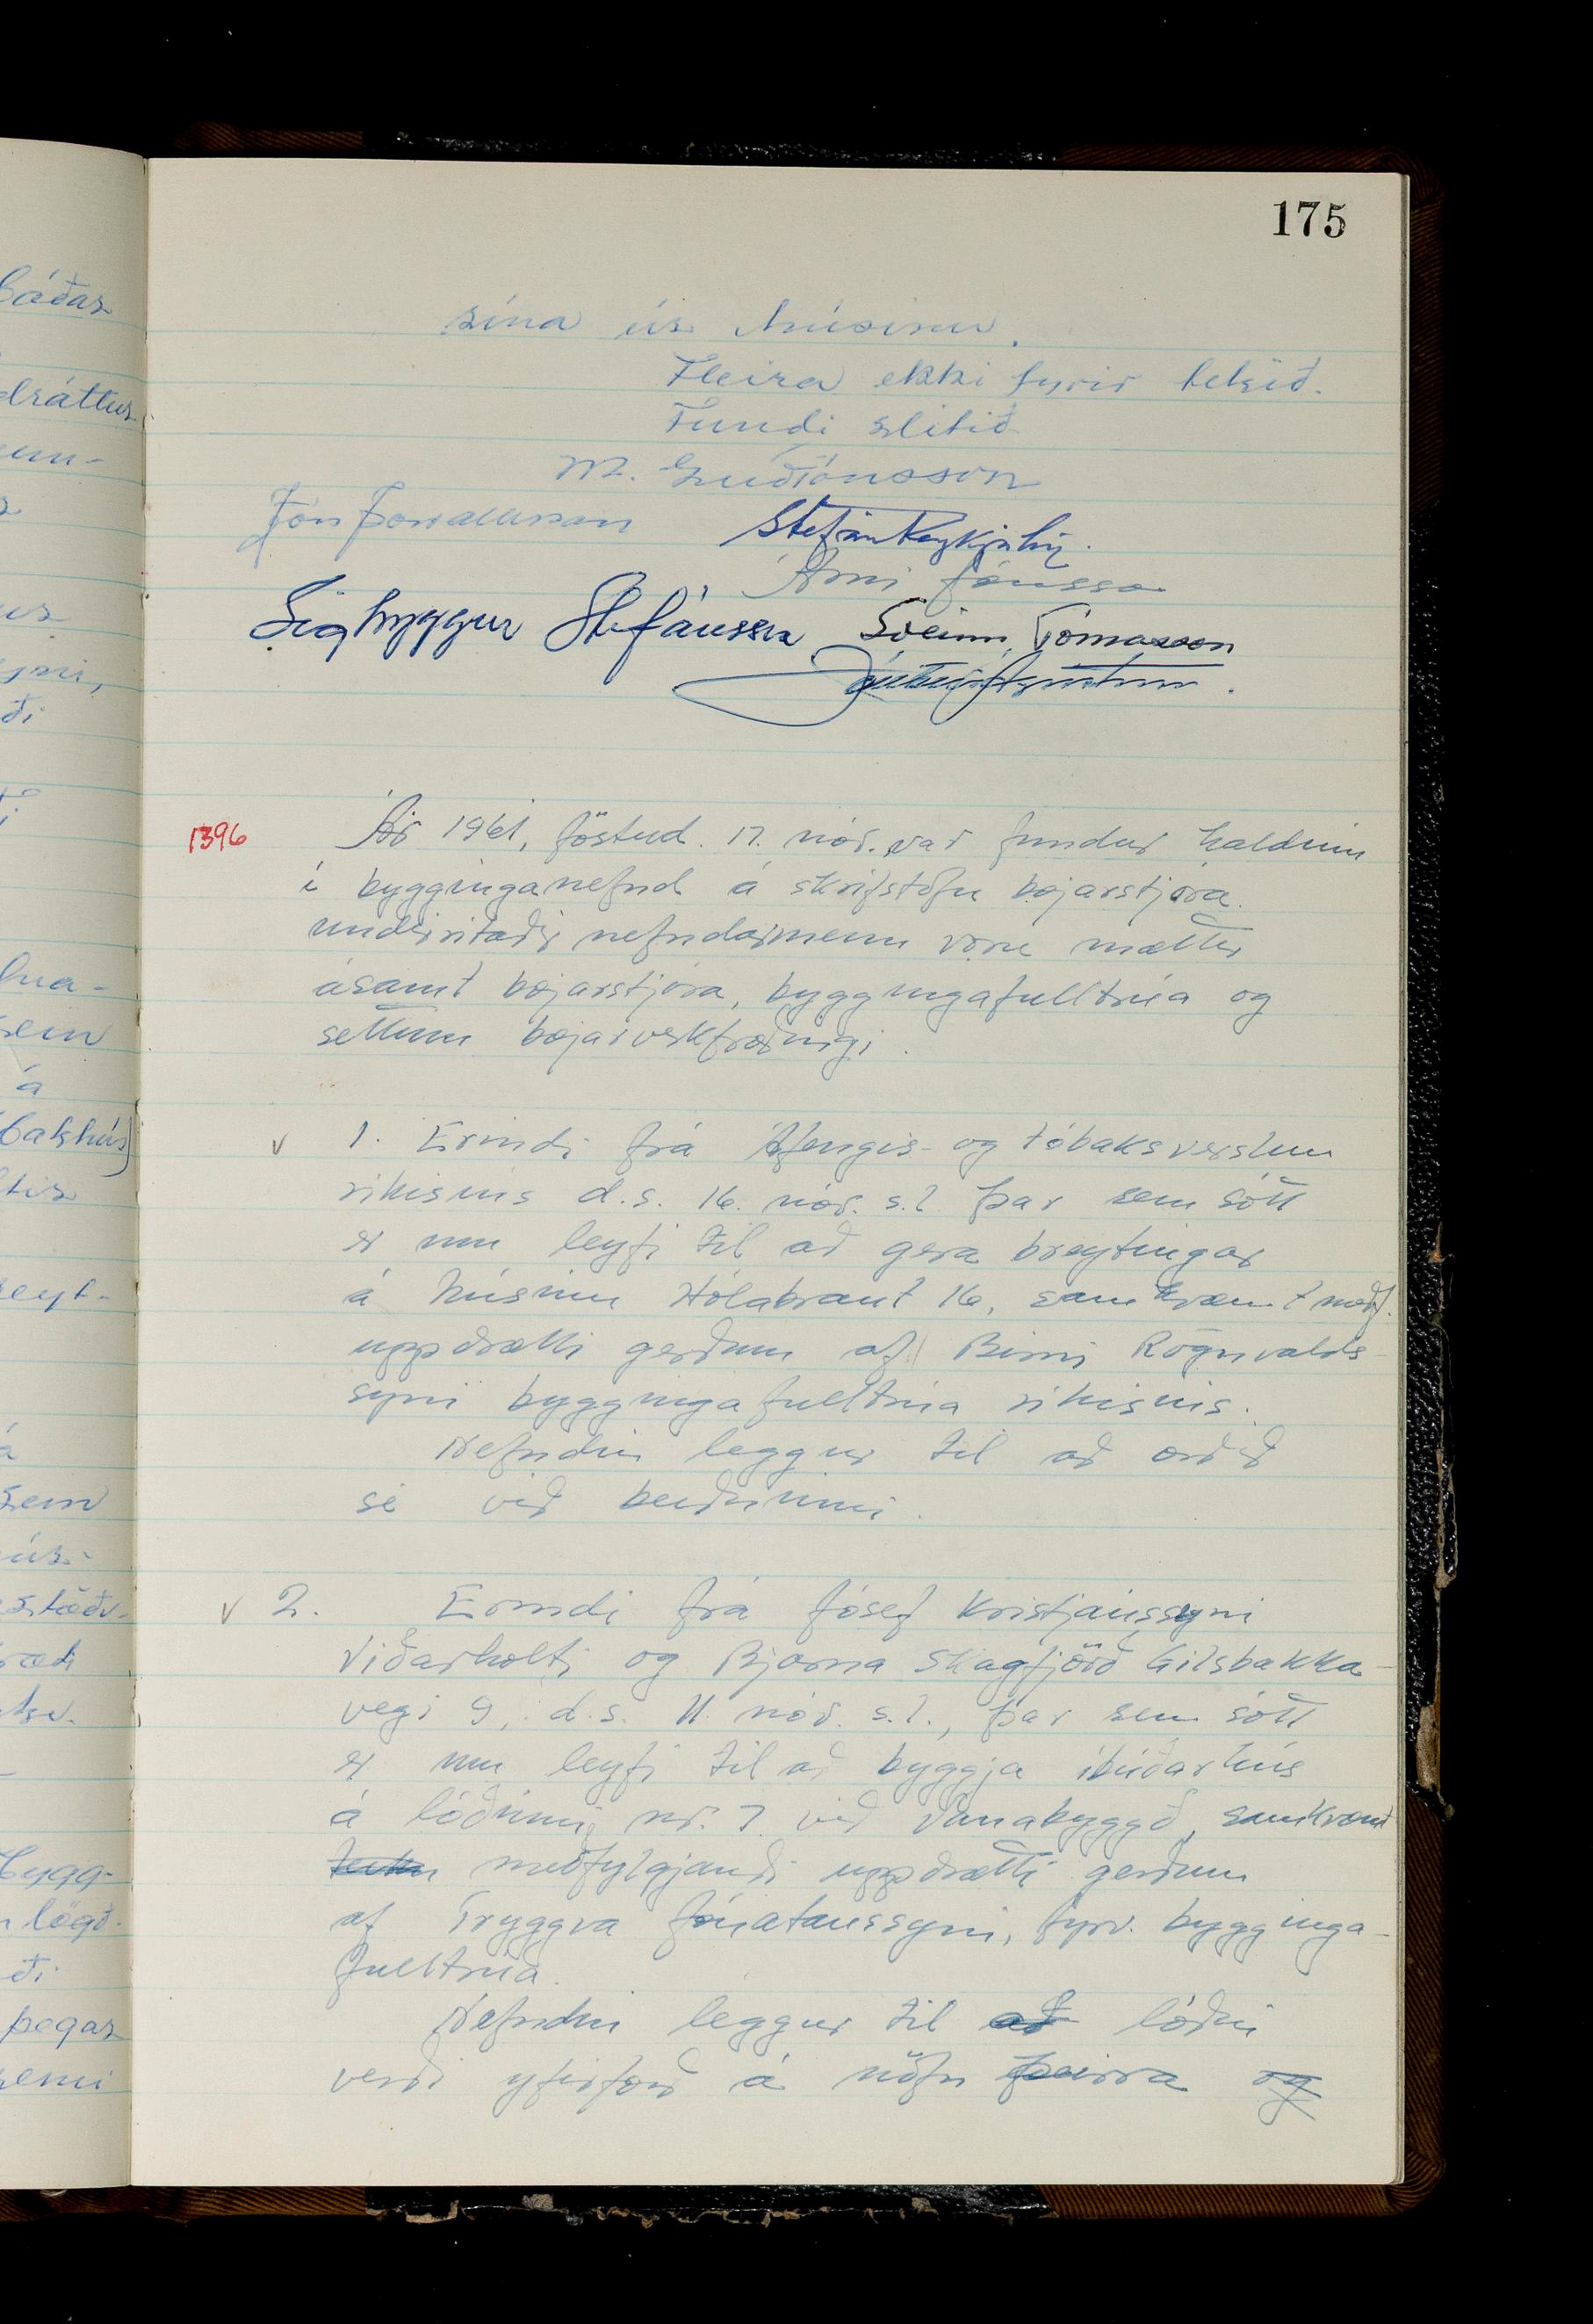 175
sína úr húsinu.
Fleira ekki fyrir tekið.
Fundi slitið
M. Guðjónsson
Jón Þorvaldsson Stefán Reykjalín
Árni Jónsson
Sigtryggur Stefánsson Sveinn Tómasson
1396 Ár 1961, föstud. 17. nóv. var fundur haldinn
í bygginganefnd á skrifstofu bæjarstjóra.
undirritaðir nefndarmenn voru mættir
ásamt bæjarstjóra, byggingafulltrúa og
settum bæjarverkfræðingi.
v 1. Erindi frá Áfengis- og tóbaksverslun
ríkisins d.s. 16. nóv. s.l. þar sem sótt
er um leyfi til að gera breytingar
á húsinu Hólabraut 16, samkvæmt meðf.
uppdrætti gerðum af Birni Rögnvalds-
syni byggingafulltrúa ríkisins.
Nefndin leggur til að orðið
sé við beiðninni.
v 2. Erindi frá Jósef Kristjánssyni
Viðarholti og Bjarna Skagfjörð Gilsbakka-
vegi 9, d.s. 11. nóv. s.l., þar sem sótt
er um leyfi til að byggja íbúðarhús
á lóðinni nr. 7 við Vanabyggð, samkvæmt
meðfylgjandi uppdrætti gerðum
af Tryggva Jónatanssyni, fyrv. bygginga-
fulltrúa.
Nefndin leggur til að lóðin
verði yfirfærð á nöfn þeirra og
báðar
dráttur